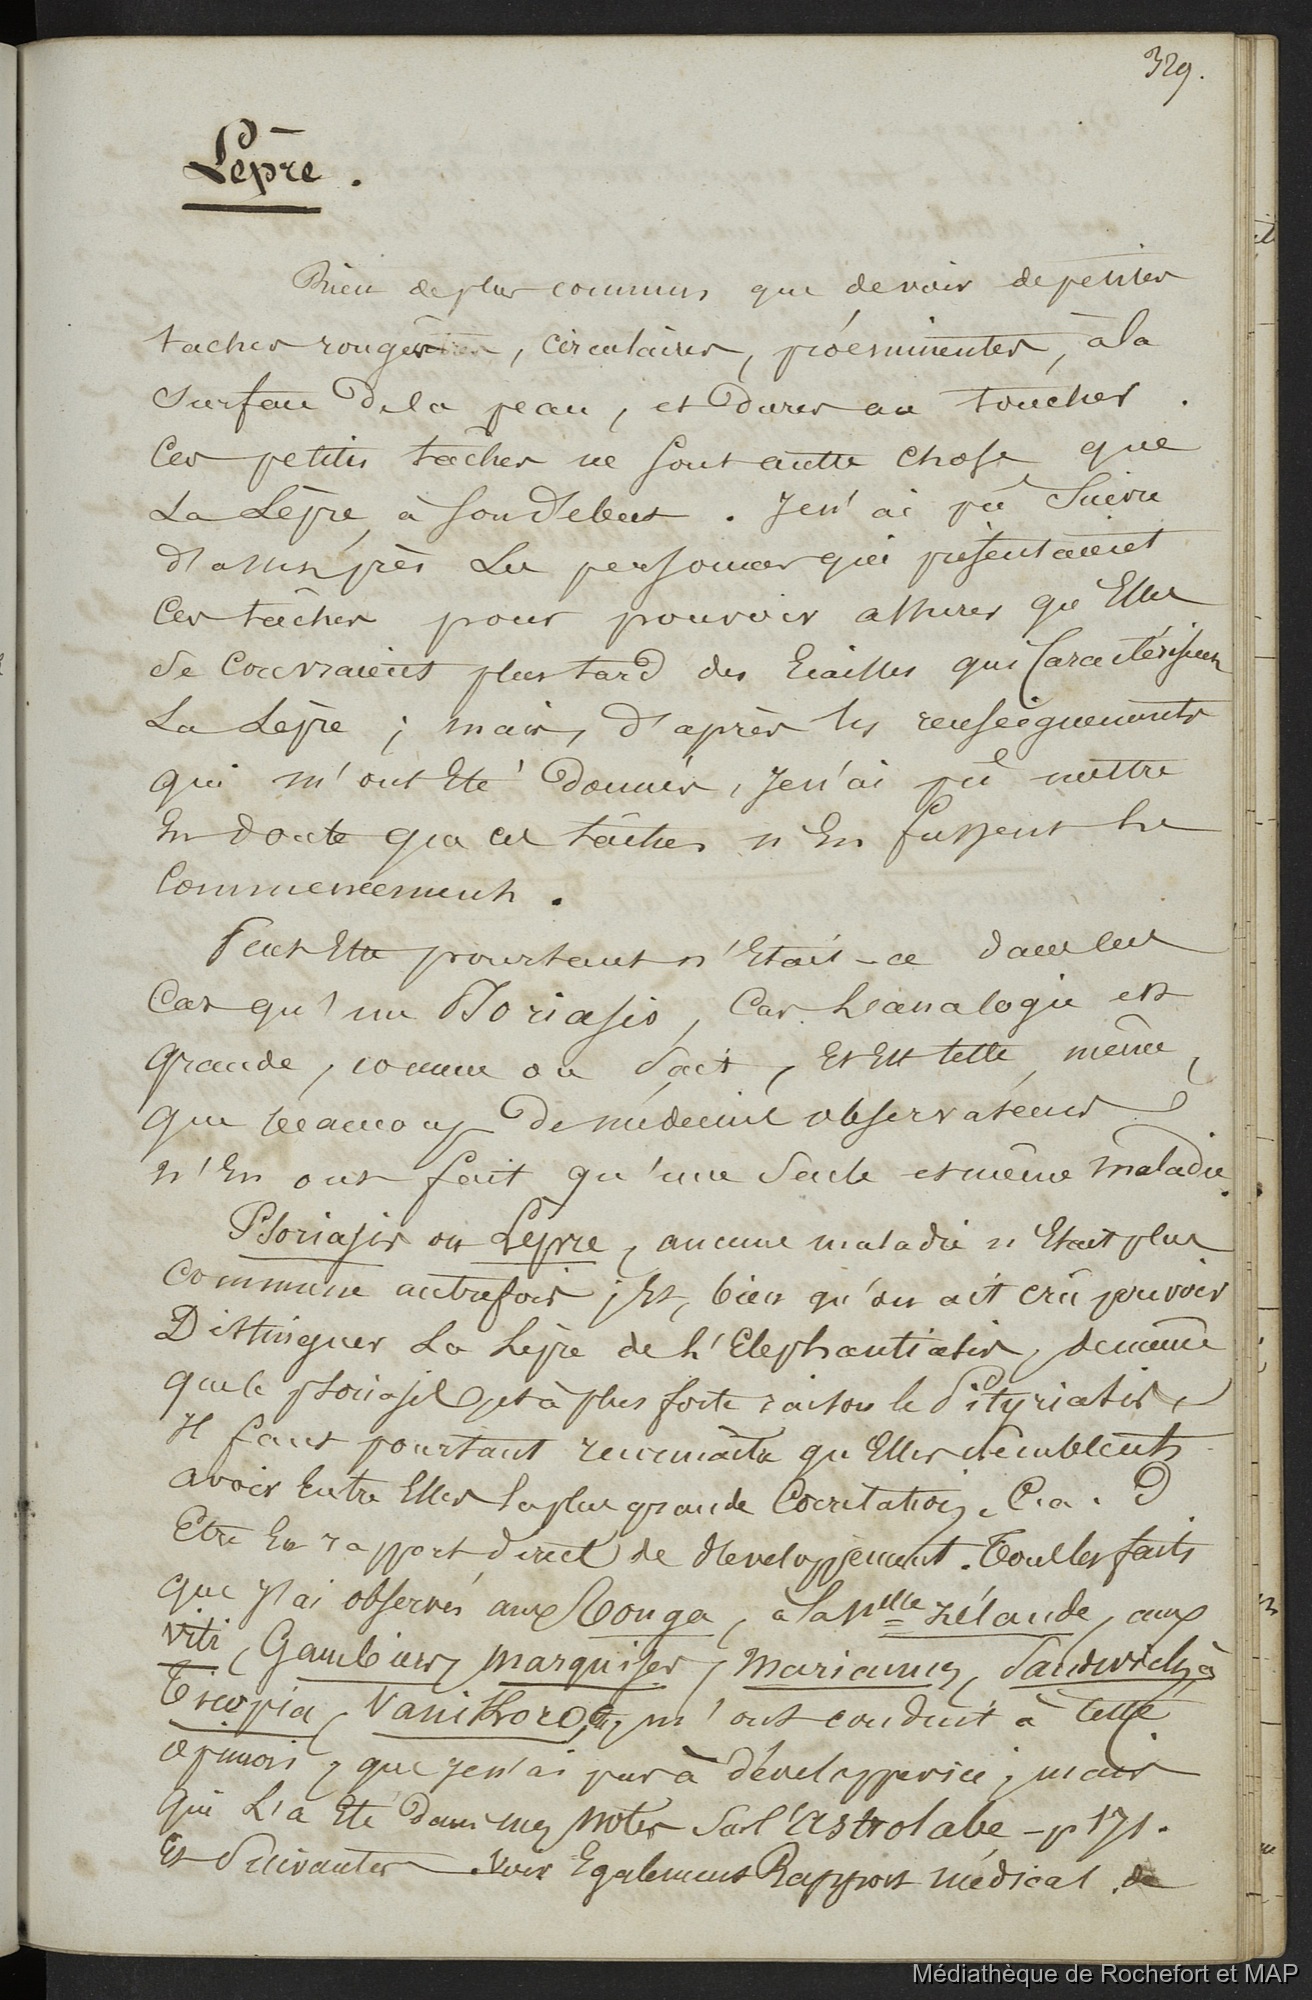 329.
Lèpre.
Rien de plus commun que de voir de petites
taches rougeâtres, circulaires, proéminentes, à la
surface de la peau, et dures au toucher.
Ces petites tâches ne sont autre chose que
La Lèpre, à son debut. Je n'ai pû suivre
d'assez près Les personnes qui présentaient
Ces tâches pour pouvoir assurer qu'Elles
se couvraient plus tard des Ecailles qui Caractérisent
La Lèpre ; mais, d'après les renseignements
qui m'ont Eté donnés, Je n'ai pû mettre
En doute que ces tâches n'En fussent Le
Commencement.
Peut Etre pourtant n'Etait-ce dans ces
Cas qu'un Psoriasis, Car L'analogie est
grande, comme on sait, Et Est telle, même,
que beaucoup De médecins observateurs
n'En ont fait qu'une seule et même maladie.
Psoriasis ou Lèpre, aucune maladie n'Etait plus
Commune autrefois ; Et, bien qu'on ait crû pouvoir
Distinguer La Lèpre de L'Elephantiasis, de même
que le psoriasis et à plus forte raison le Pityriasis,
Il faut pourtant reconnaître qu'Elles semblent
avoir Entre Elles la plus grande Correlation, C. a. D
Etre En rapport direct de developpement. Tous les faits
que j'ai observés aux Tonga, à la Nlle Zélande, aux
Viti, Gambier, Marquises, Mariannes, Sandwich, à
Tucopia, Vanikoro, &, m'ont conduit à cette
opinion, que je n'ai pas à développer ici, mais
qui L'a Eté dans mes Notes sur l'Astrolabe - p 171.
Et suivantes. Voir Egalement Rapport médical de
Médiathèque de Rochefort et MAP